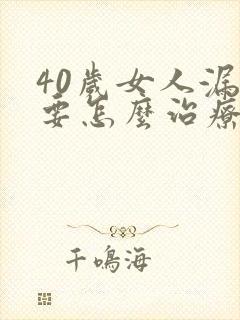 40歲女人漏
要怎麼治療
千鳴海